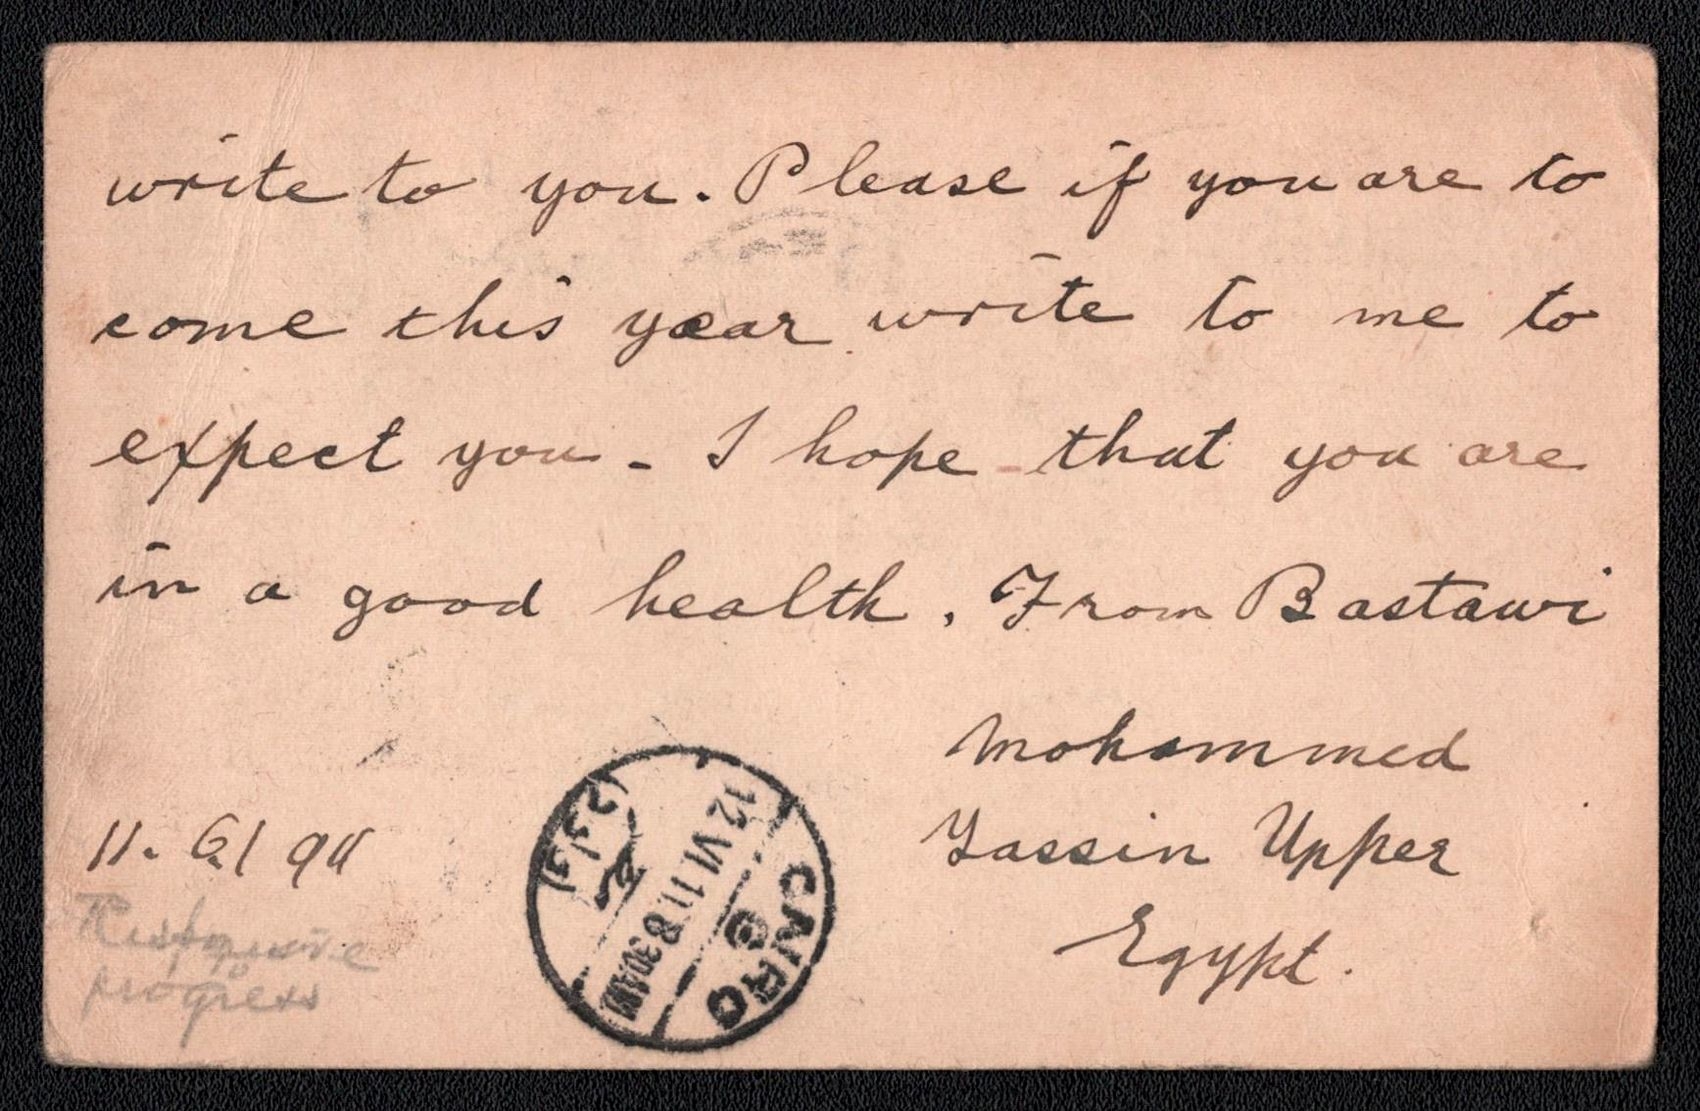 write to you. Please if you are to
come this year write to me to
expect you - I hope that you are
in a good health. From Bastawi
Mohammed
Yassin Upper
Egypt.
11. 6. 1911
progress
CAIRO
12 VI 11 8 30 AM